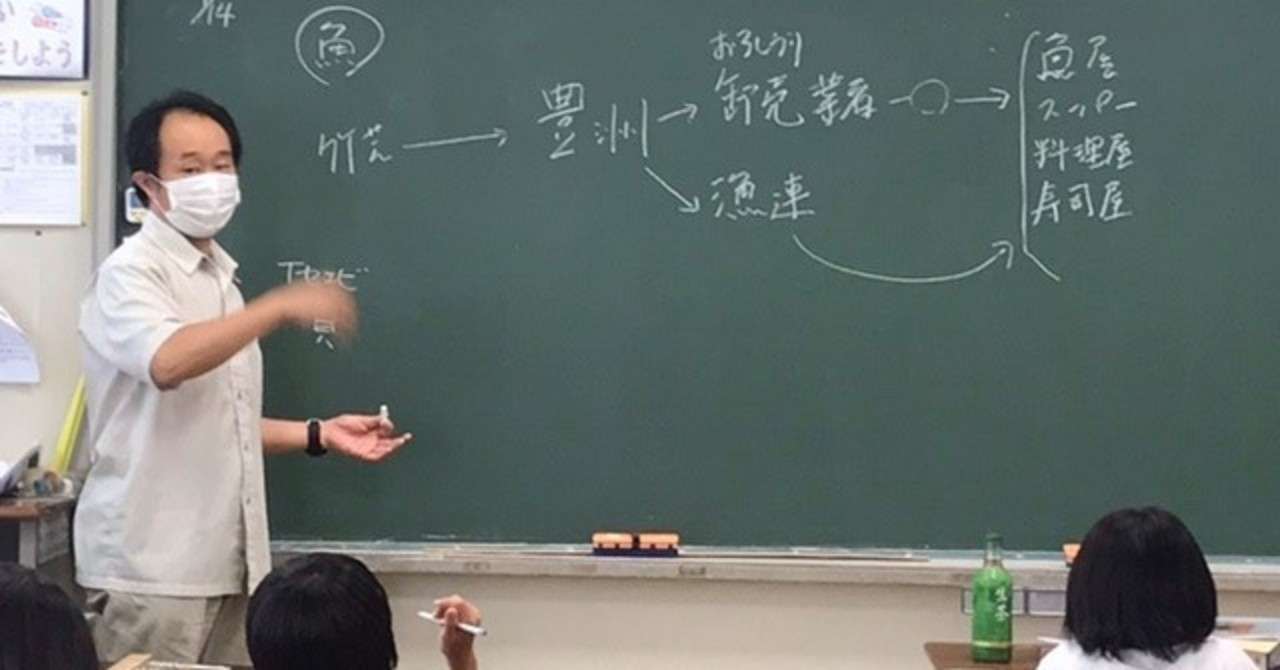 をしよう
魚
竹芝 → 豊洲
おろしうり
卸売業者 → 
漁連
魚屋
スーパー
料理屋
寿司屋
生茶